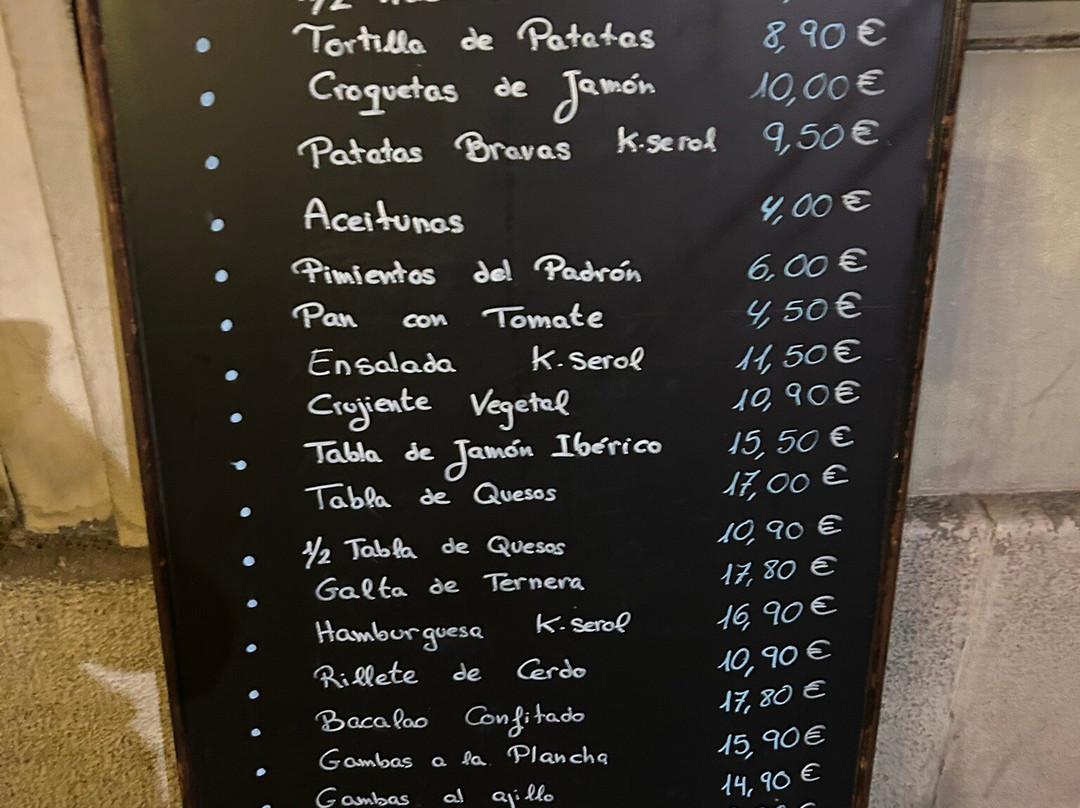 1/2
Tortilla de Patatas 8,90 €
Croquetas de Jamón 10,00 €
Patatas Bravas K.serol 9,50 €
Aceitunas 4,00 €
Pimientos del Padrón 6,00 €
Pan con Tomate 4,50 €
Ensalada K.serol 11,50 €
Crujiente Vegetal 10,90 €
Tabla de Jamón Ibérico 15,50 €
Tabla de Quesos 17,00 €
1/2 Tabla de Quesos 10,90 €
Galta de Ternera 17,80 €
Hamburguesa K.serol 16,90 €
Rillete de Cerdo 10,90 €
Bacalao Confitado 17,80 €
Gambas a la Plancha 15,90 €
Gambas al ajillo 14,90 €